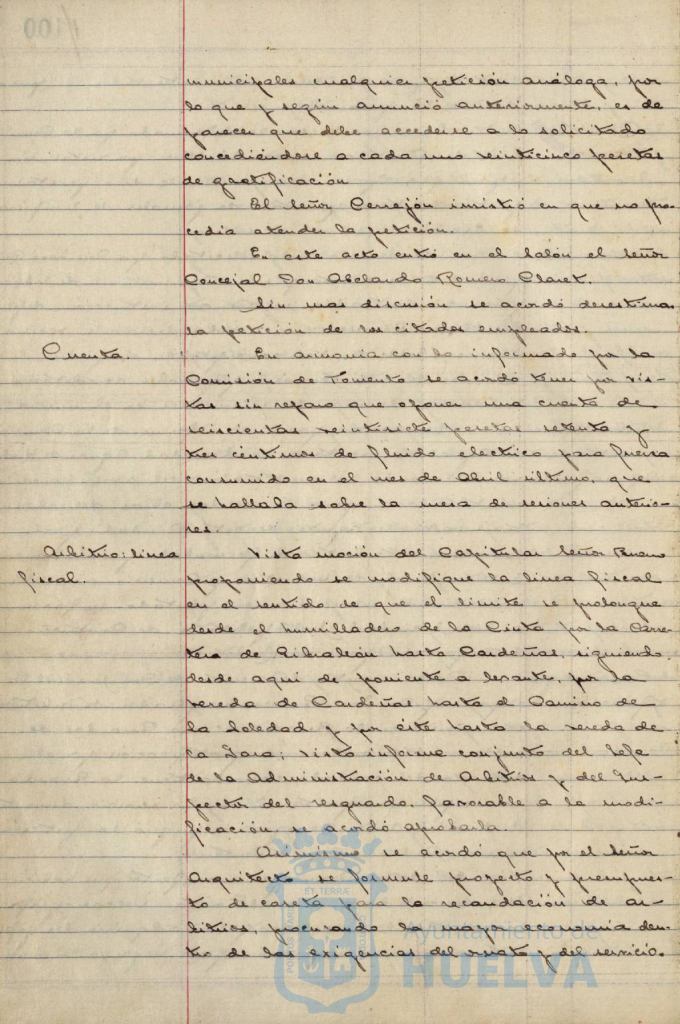 municipales cualquier petición análoga, por
lo que y según anunció anteriormente, es de
parecer que debe accederse a lo solicitado
concediéndose a cada uno veinticinco pesetas
de gratificación
El Señor Cerrejón insistió en que no pro-
cedía atender la petición.
En este acto entró en el Salón el Señor
Concejal Don Abelardo Romero Claret.
Sin mas discusión se acordó desestimar
la petición de los citados empleados.
Cuenta.
En armonía con lo informado por la
Comisión de Fomento se acordó tener por vis-
tas sin reparo que oponer una cuenta de
seiscientas veintisiete pesetas setenta y
tres céntimos de fluido electrico para fuerza
consumido en el mes de Abril último, que
se hallaba sobre la mesa de sesiones anterio-
res.
Arbitrio: linea
fiscal.
Vista moción del Capitular Señor Bueno
proponiendo se modifique la linea fiscal
en el sentido de que el límite se prolongue
desde el humilladero de la Cinta por la Carre-
tera de Gibraleón hasta Cardeñas, siguiendo
desde aquí de poniente a levante, por la
vereda de Cardeñas hasta el Camino de
la Soledad y por éste hasta la vereda de
la Jara; visto informe conjunto del Jefe
de la Administración de Arbitrios y del Ins-
pector del resguardo, favorable a la modi-
ficación, se acordó aprobarla.
Asimismo se acordó que por el Señor
Arquitecto se formule proyecto y presupues-
to de caseta para la recaudación de ar-
bitrios, procurando la mayor economía den-
tro de las exigencias del ornato y del servicio.
Ayuntamiento de
HUELVA